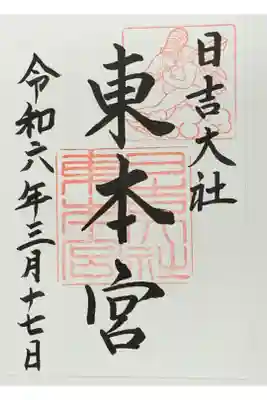 日吉大社
東本宮
令和六年三月十七日